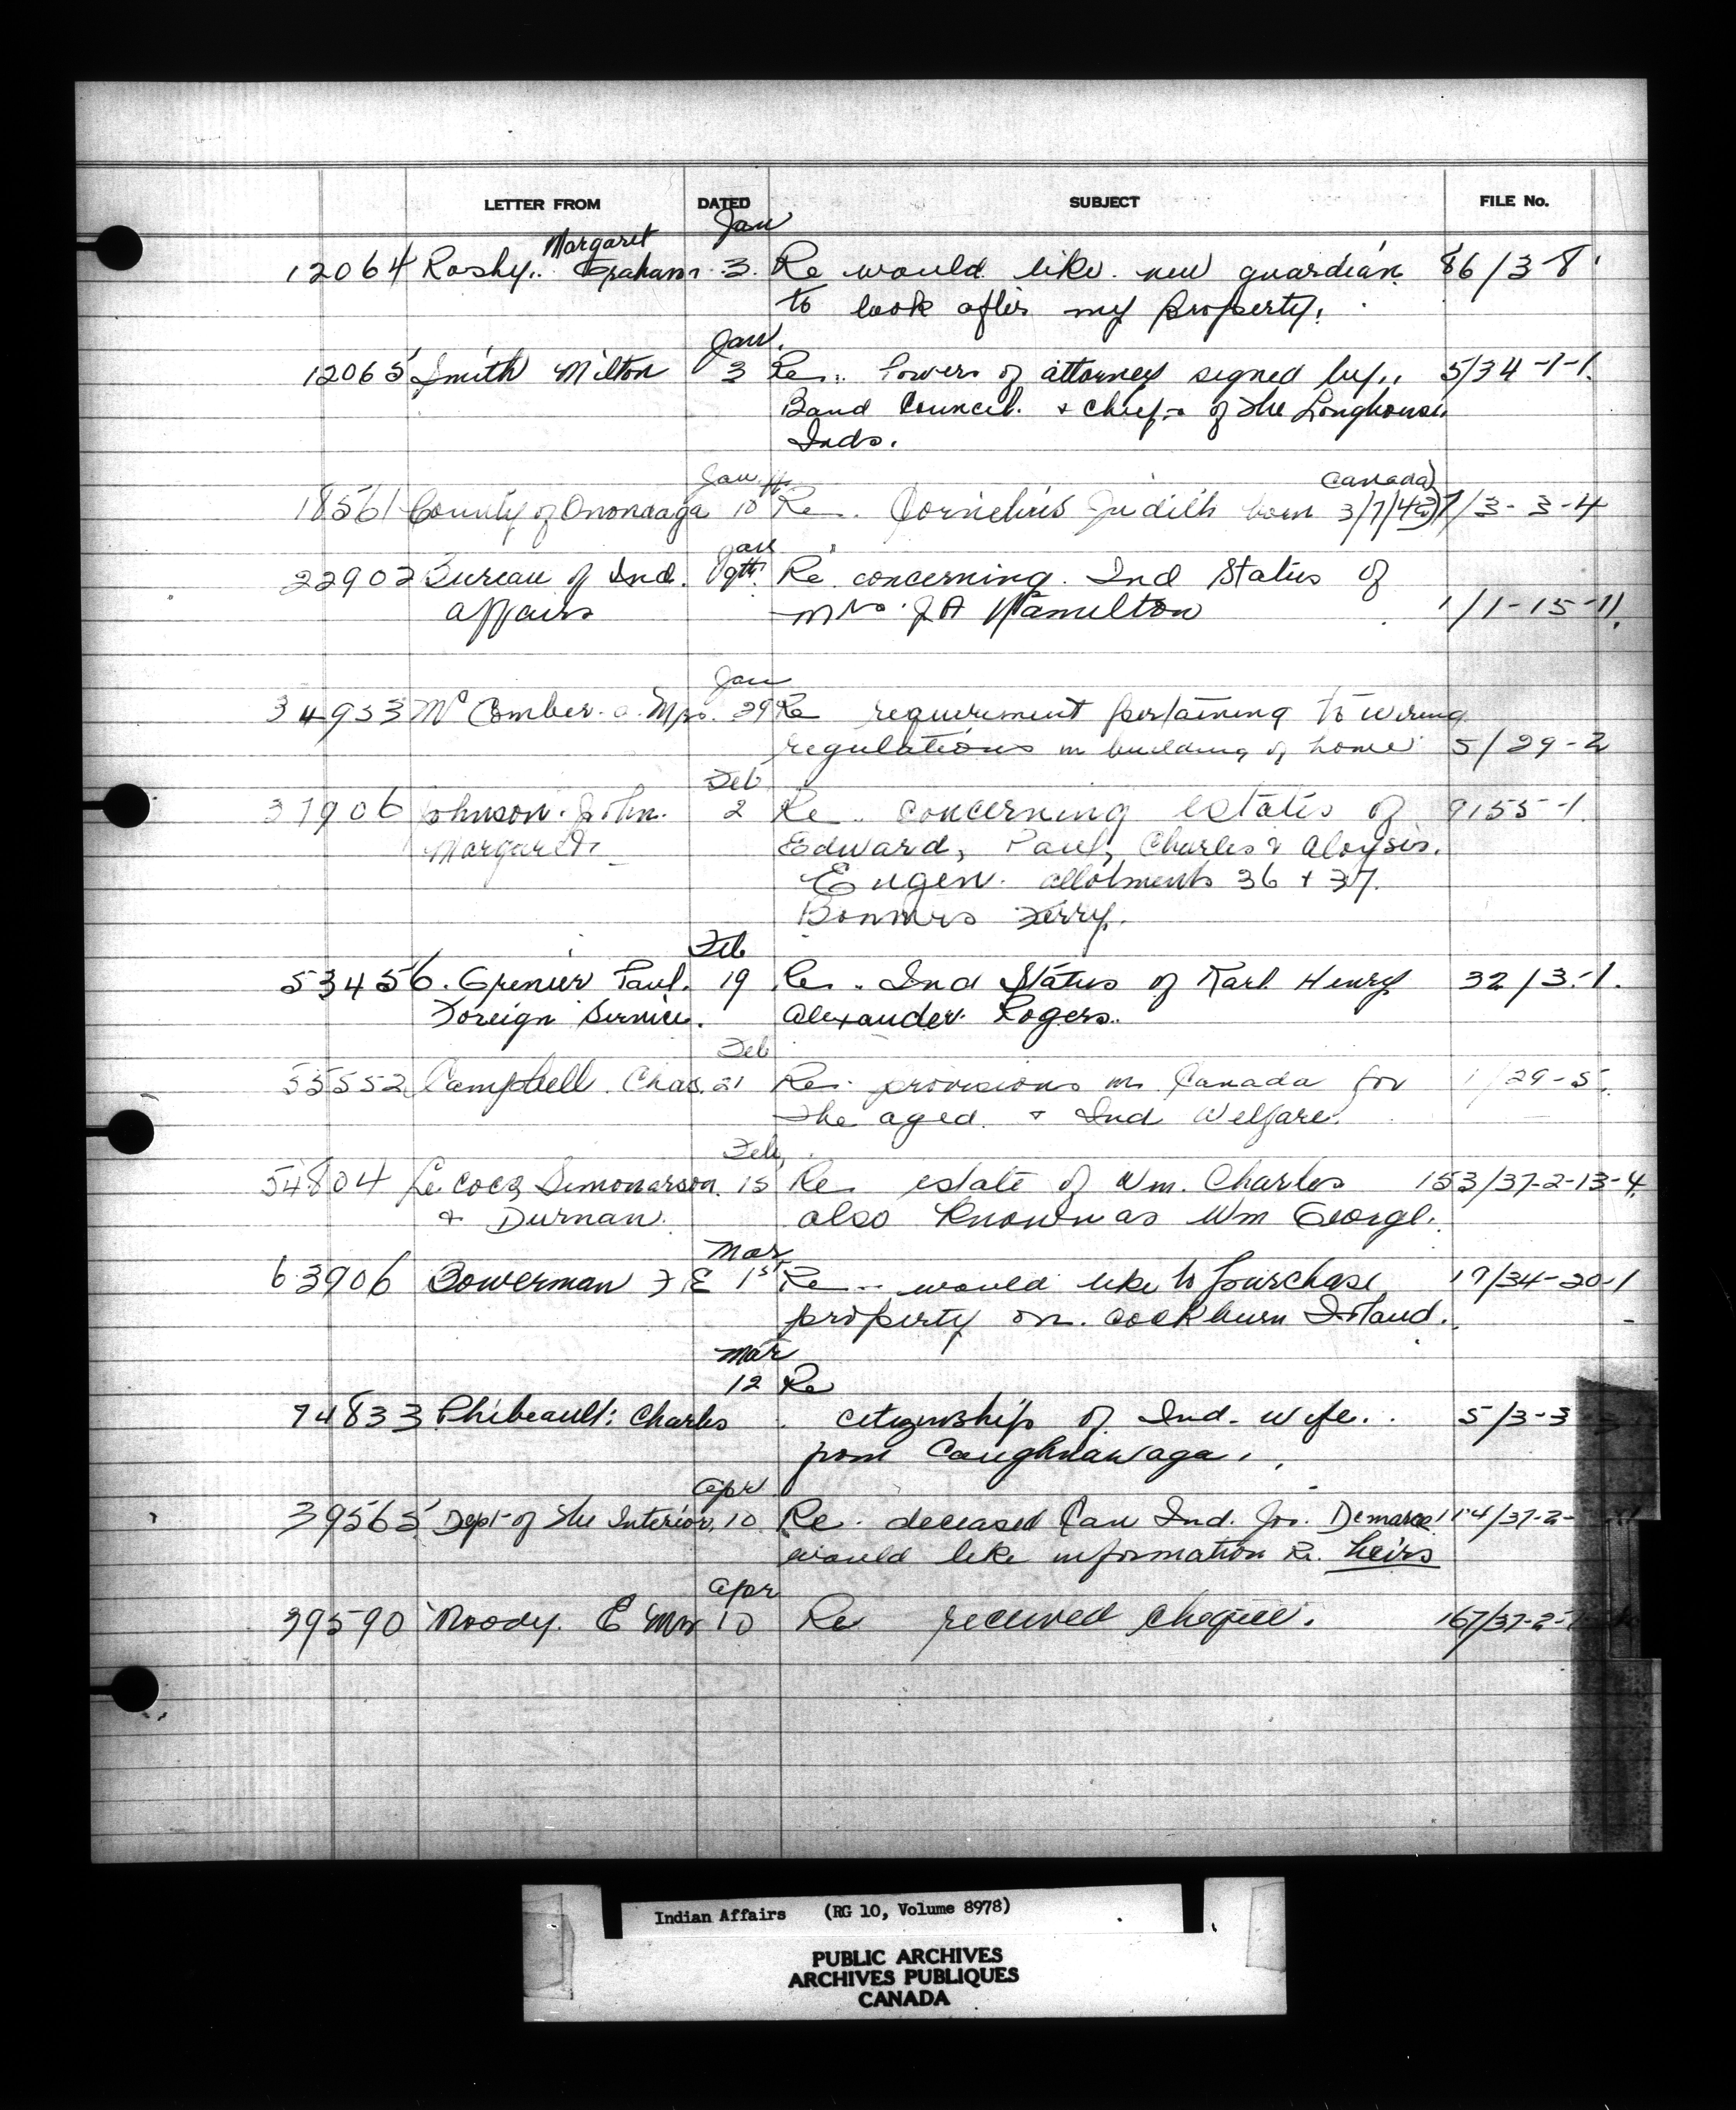 LETTER FROM DATED SUBJECT FILE No.
Margaret Jan
12064 Rashy.. Graham 3. Re would like new guardian 86/3-8
to look after my property.
Jan.
12065 Smith Milton 3 Re.. Powers of attorney signed by..
5/34-1-1.
Band Council. & chiefs of the Longhouse
Inds.
Jan Canada)
18561 County of Onondaga 10 Re. Cornelius Judith born 3/7/43 /3-3-4
Jan
22902 Bureau of Ind. 9th. Re concerning Ind Status of
affairs Mrs. J A Hamilton 1/1-15-11.
Jan
34953 Mc Comber Mrs. 29 Re requirement pertaining to wiring
regulations in building of home 5/29-2
Feb
37906 Johnson. John. 2 Re. concerning estates of 9155-1.
Margaret Edward, Paul, Charles & Aloysis.
Eugen. allotments 36 + 37.
Bonners Ferry.
Feb
53456. Grenier Paul. 19 Re. Ind Status of Karl Henry 32/3-1.
Foreign Service. Alexander Rogers.
Feb
55552 Campbell Chas. 21 Re. provisions in Canada for 1/29-5.
the aged. & Ind Welfare.
Feb
54804 Le Cocq Simonarson. 15 Re estate of Wm. Charles 153/37-2-13-4
& Durnan. also known as Wm George.
Mar
63906 Bowerman F E 1st Re.. would like to purchase 19/34-20-1
property on. Cockburn Island.
Mar
12 Re
74833 Phibeault: Charles citizenship of Ind. wife.. 5/3-3
from Caughnawaga.
Apr
39565 Dept of the Interior, 10 Re. deceased Can Ind. Jos. Demarce 114/37-2-
would like information Re. heirs
Apr
39590 Moody. E Mrs 10 Re received cheque. 167/37-2-
Indian Affairs (RG 10, Volume 8978)
PUBLIC ARCHIVES
ARCHIVES PUBLIQUES
CANADA